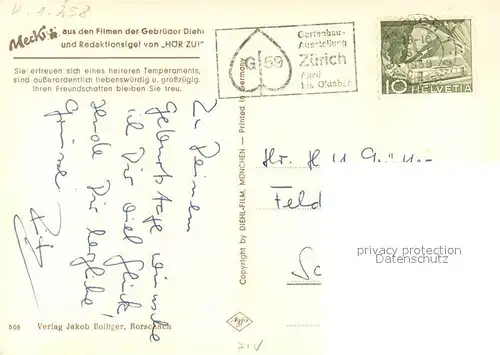 V. 1. 258
Mecki aus den Filmen der Gebrüder Diehl
und Redaktionsigel von „HÖR ZU!"
Sie erfreuen sich eines heiteren Temperaments,
sind außerordentlich liebenswürdig u. großzügig.
Ihren Freundschaften bleiben Sie treu.
G 59
Gartenbau-
Ausstellung
Zürich
April
bis Oktober
10 HELVETIA
Zu Deinem
Geburtstage wünsche
ich Dir viel Glück!
sende Dir herzliche
Grüsse!
Copyright by DIEHL-FILM, MÜNCHEN — Printed in Germany
Hr. H
Feld
privacy protection
Personendatenschutz
508 Verlag Jakob Bolliger, Rorschach